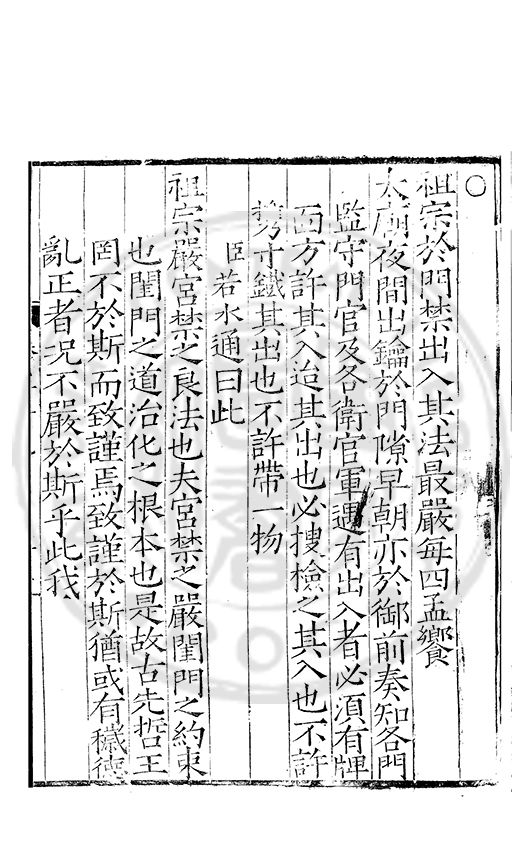 ○
祖宗於門禁出入其法最嚴每四孟饗
太廟夜間出鑰於門隙早朝亦於御前奏知各門
監守門官及各衛官軍遇有出入者必須有牌
面方許其入迨其出也必搜檢之其入也不許
携寸鐵其出也不許帶一物
臣若水通曰此
祖宗嚴宮禁之良法也夫宮禁之嚴閨門之約束
也閨門之道治化之根本也是故古先哲王
罔不於斯而致謹焉致謹於斯猶或有穢德
亂正者况不嚴於斯乎此我